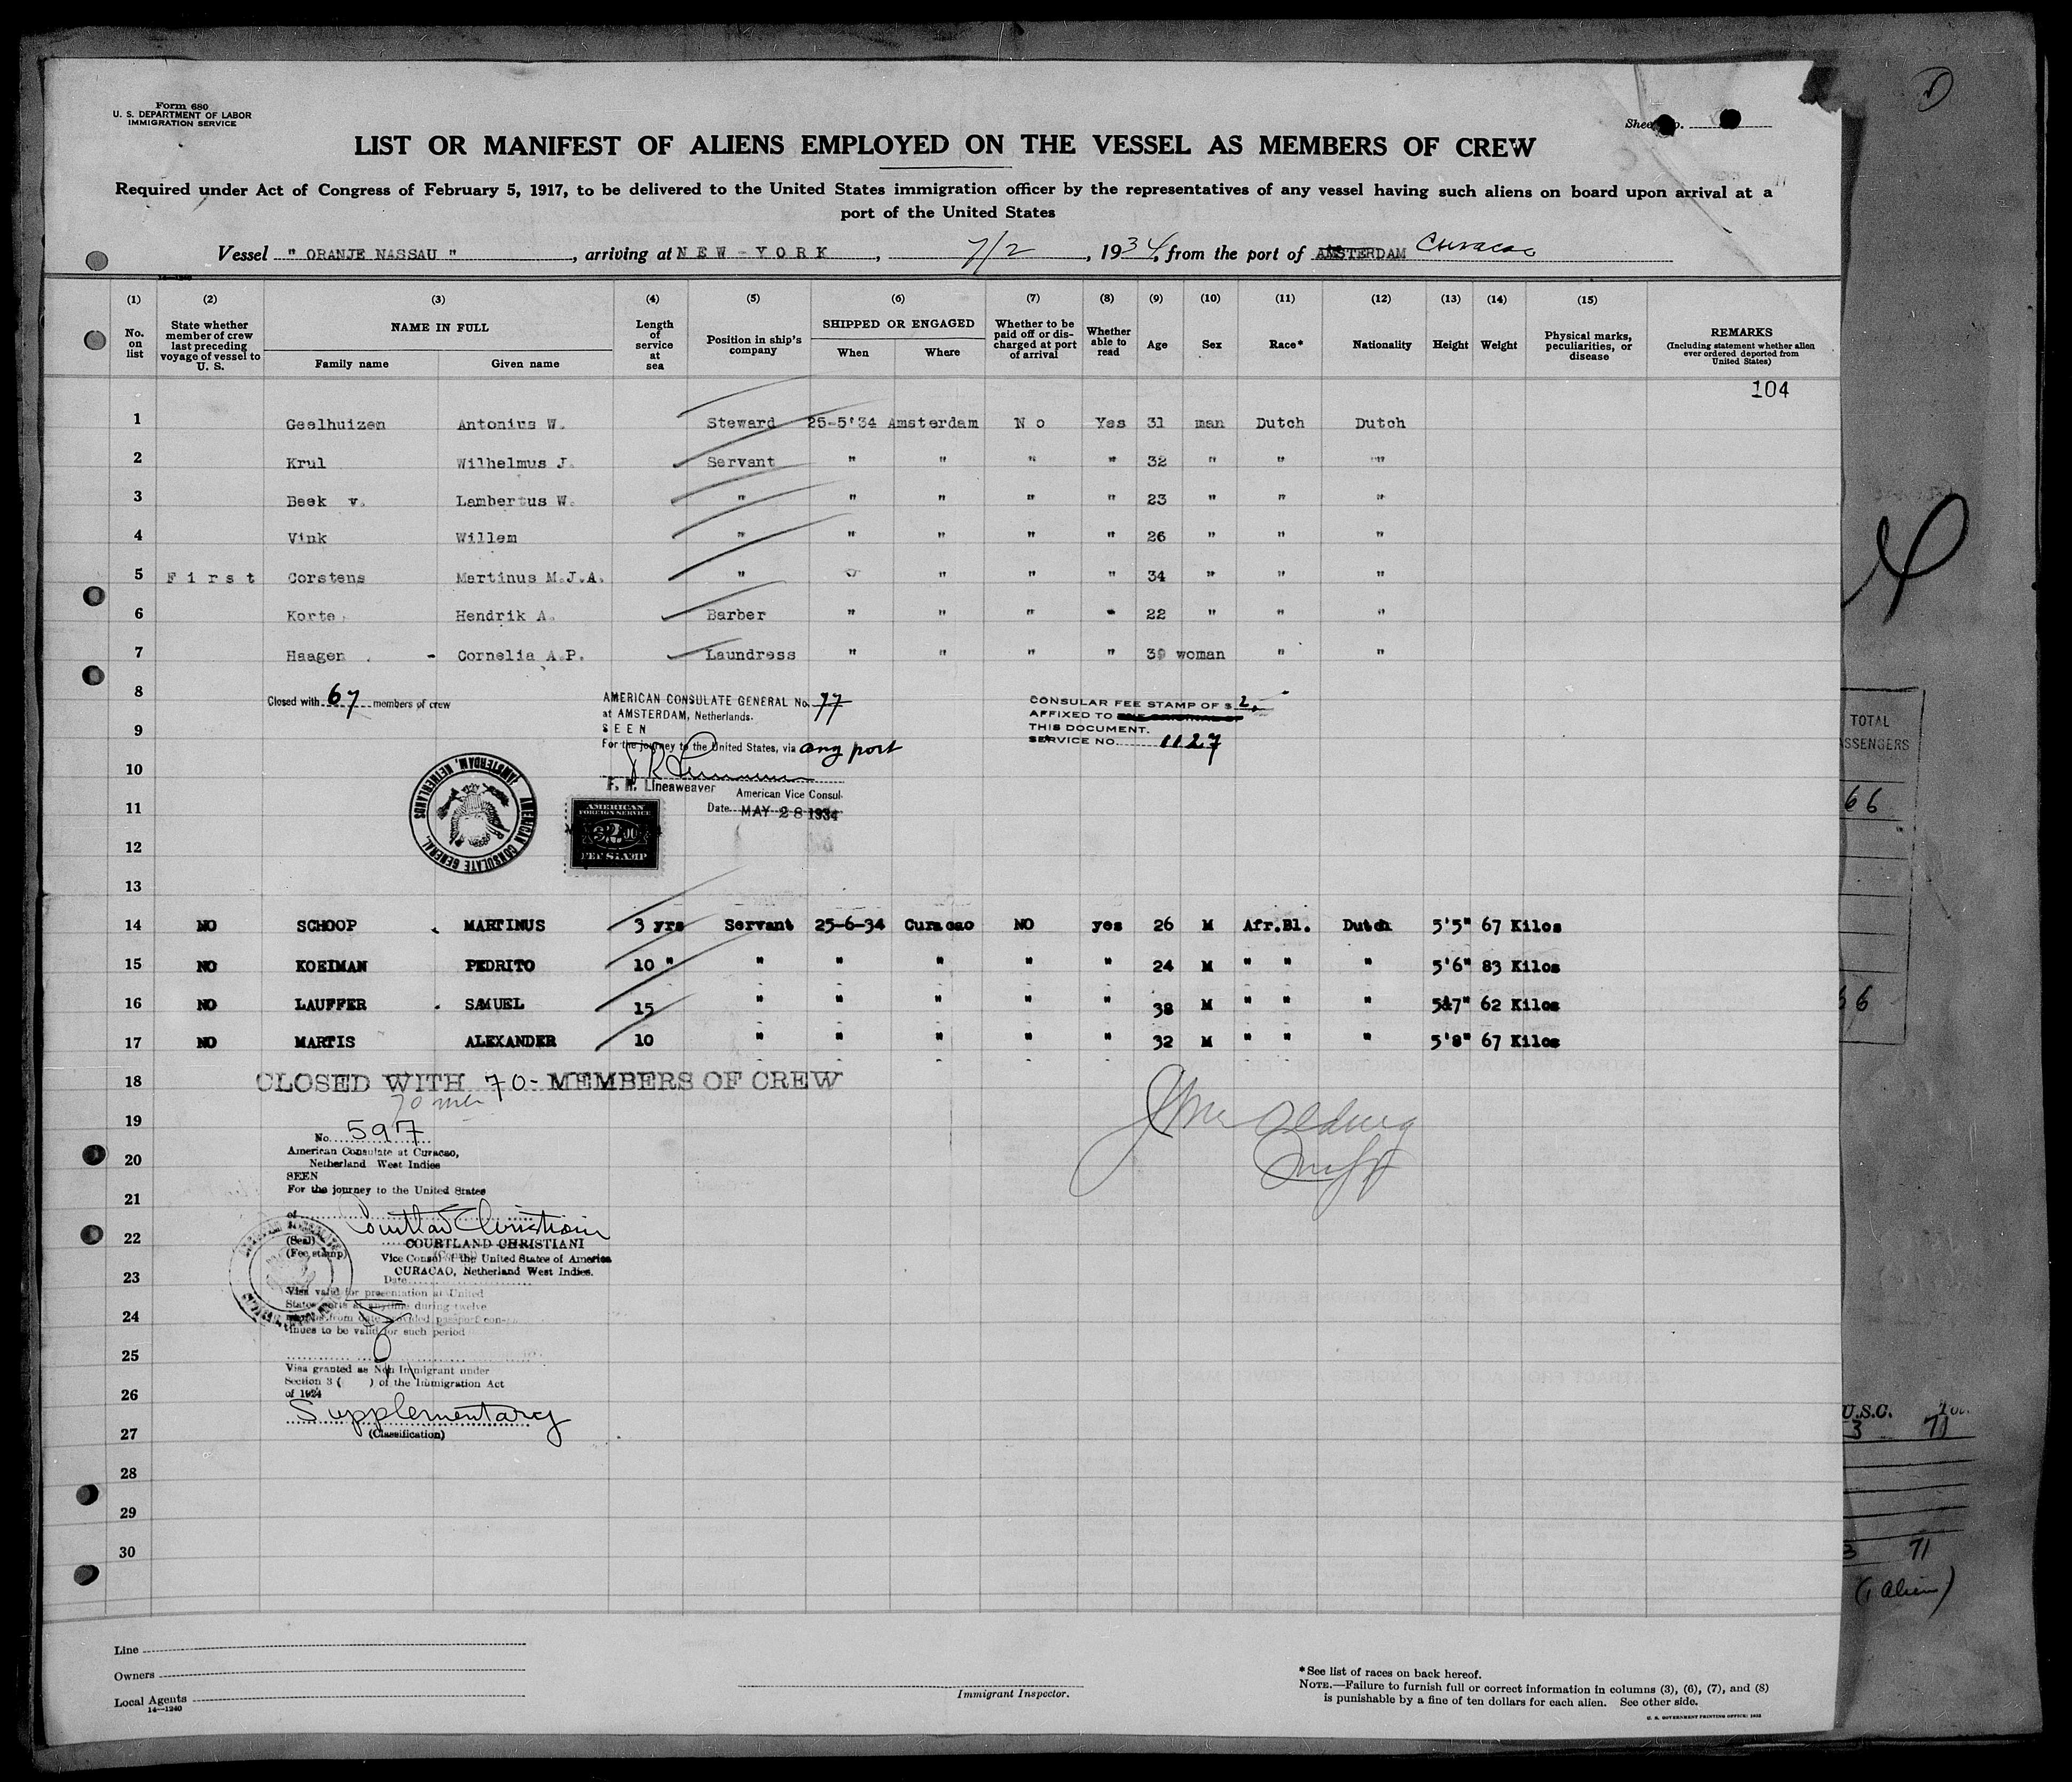 Form 680
U. S. DEPARTMENT OF LABOR
IMMIGRATION SERVICE
LIST OR MANIFEST OF ALIENS EMPLOYED ON THE VESSEL AS MEMBERS OF CREW
Required under Act of Congress of February 5, 1917, to be delivered to the United States immigration officer by the representatives of any vessel having such aliens on board upon arrival at a
port of the United States
Vessel " ORANJE NASSAU ", arriving at NEW-YORK, 7/2, 1934, from the port of AMSTERDAM Curacao
(1) (2) (3) (4) (5) (6) (7) (8) (9) (10) (11) (12) (13) (14) (15)
No. on list
State whether member of crew last preceding voyage of vessel to U. S.
NAME IN FULL
Family name Given name
Length of service at sea
Position in ship's company
SHIPPED OR ENGAGED
When Where
Whether to be paid off or discharged at port of arrival
Whether able to read
Age Sex Race* Nationality Height Weight
Physical marks, peculiarities, or disease
REMARKS
(Including statement whether alien ever ordered deported from United States)
104
1 Geelhuizen Antonius W. Steward 25-5'34 Amsterdam N o Yes 31 man Dutch Dutch
2 Krul Wilhelmus J. Servant " " " " 32 " " "
3 Beek v. Lambertus W. " " " " " 23 " " "
4 Vink Willem " " " " " 26 " " "
5 First Corstens Martinus M.J.A. " " " " " 34 " " "
6 Korte Hendrik A. Barber " " " " 22 " " "
7 Haagen - Cornelia A.P. Laundress " " " " 39 woman " "
8
Closed with 67 members of crew
AMERICAN CONSULATE GENERAL No. 77
at AMSTERDAM, Netherlands.
SEEN
For the journey to the United States, via any port
F. R. Lineaweaver American Vice Consul
Date MAY 28 1934
CONSULAR FEE STAMP OF $ 2.-
AFFIXED TO
THIS DOCUMENT.
SERVICE NO. 1127
AMERICAN CONSULATE GENERAL. AMSTERDAM, NETHERLANDS
AMERICAN
FOREIGN SERVICE
FEE STAMP
9
10
11
12
13
14 NO SCHOOP MARTINUS 3 yrs Servant 25-6-34 Curacao NO yes 26 M Afr.Bl. Dutch 5'5" 67 Kilos
15 NO KOEIMAN PEDRITO 10 " " " " " " 24 M " " " 5'6" 83 Kilos
16 NO LAUFFER SAMUEL 15 " " " " " 38 M " " " 5'7" 62 Kilos
17 NO MARTIS ALEXANDER 10 " " " " " 32 M " " " 5'8" 67 Kilos
18 CLOSED WITH 70- MEMBERS OF CREW
19
No. 597
American Consulate at Curacao,
Netherland West Indies
20
SEEN
For the journey to the United States
21
of Courtland Christiani
(Seal)
(Fee stamp)
22
COURTLAND CHRISTIANI
Vice Consul of the United States of America
CURACAO, Netherland West Indies.
Date
23
Visa valid for presentation at United
States ports at anytime during twelve
months from date provided passport con-
tinues to be valid for such period
24
25
Visa granted as Non Immigrant under
Section 3 ( ) of the Immigration Act
of 1924
26
Supplementary
(Classification)
27
28
29
30
Line
Owners
Local Agents
14—1240
Immigrant Inspector.
*See list of races on back hereof.
NOTE.—Failure to furnish full or correct information in columns (3), (6), (7), and (8)
is punishable by a fine of ten dollars for each alien. See other side.
U. S. GOVERNMENT PRINTING OFFICE: 1932
TOTAL
66
66
U.S.C.
3 71
3 71
(1 alien)